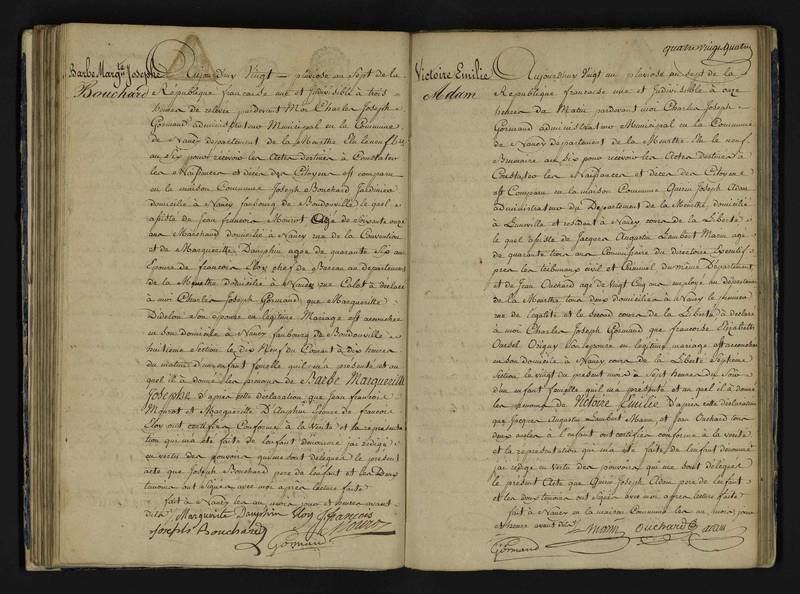 Barbe Margte Josephe
Bouchard
Aujourdhuy Vingt pluviose an Sept de la
Republique francaise une et Indivisible à trois
heures de relevée pardevant Moi Charles Joseph
Gormand administrateur Municipal en la Commune
de Nancy departement de la Meurthe Elu le neuf
an Six pour recevoir les Actes destinés à Constater
les Naissances et deces des Citoyens est comparu
en la maison Commune Joseph Bouchard Jardinier
domicilié à Nancy faubourg de Boudonville le quel
assisté de Jean francois Mourot agé de soixante onze
ans Marchand domicilié à Nancy rue de la Convention
et de Margueritte Dauphin agée de quarante Six ans
Epouse de francois Eloy chef de Bureau au departement
de la Meurthe domicilié à Nancy rue Calot à declaré
à moi Charles Joseph Gormand que Margueritte
Didelon son epouse en legitime Mariage est accouchée
en son domicile à Nancy faubourg de Boudonville
huitieme Section le dix Neuf du Courant à dix heures
du matin d'un enfant femelle quil m'a présenté et au
quel il a donné les prenoms de Barbe Margueritte
Josephe d'apres cette declaration que Jean francois
Mourot et Marguerite D'Auphin Epouse de francois
Eloy ont certifiés Conforme à la Verité et la representation
qui m'a été faite de l'enfant denommé j'ai redigé
en vertu des pouvoirs qui me sont delegués le present
acte que Joseph Bouchard pere de l'enfant et les deux
temoins ont Signés avec moi apres lecture faite
fait à Nancy les an mois jour et heures avant
dits Marguerite Dauphin Eloy J francois
Joseph Bouchard Mourot
Gormand
quatre vingt quatre
Victoire Emilie
Adam
Aujourdhuy Vingt un pluviose an sept de la
Republique francaise une et Indivisible à onze
heures du Matin pardevant moi Charles Joseph
Gormand administrateur Municipal en la Commune
de Nancy departement de la Meurthe Elu le neuf
Brumaire an Six pour recevoir les Actes destinés à
Constater les Naissances et Deces des Citoyens
est Comparu en la maison Commune Quirin Joseph Adam
administrateur du Departement de la Meurthe, domicilié
à Luneville et residant à Nancy cours de la Liberté
le quel assisté de Jacques Augustin Lambert Marin agé
de quarante trois ans Commissaire du directoire Executif
pres les tribunaux civil et Criminel du même Departement
et de Jean Ouchard agé de Vingt Cinq ans employé au departement
de la Meurthe tous deux domiciliés à Nancy le premier
rue de l'egalité et le second cours de la Liberté à declaré
à moi Charles Joseph Gormand que francoise Elizabeth
son epouse en legitime mariage est accouchée
en son domicile à Nancy cours de la Liberté Septieme
Section le vingt du present mois à Sept heures du Soir
d'un enfant femelle quil m'a presenté et au quel il a donné
les prenoms de Victoire Emilie D'apres cette declaration
que Jacques Augustin Lambert Marin, et Jean Ouchard tous
deux à l'enfant ont certifiés conforme à la verité
et la representation qui m'a été faite de l'enfant denommé
j'ai redigé en Vertu des pouvoirs qui me sont delegués
le present Acte que Quirin Joseph Adam pere de l'enfant
et les deux temoins ont Signés avec moi apres lecture faite
fait à Nancy en la maison Commune les an, mois jour
et heure avant dits Marin Ouchard Adam
Gormand